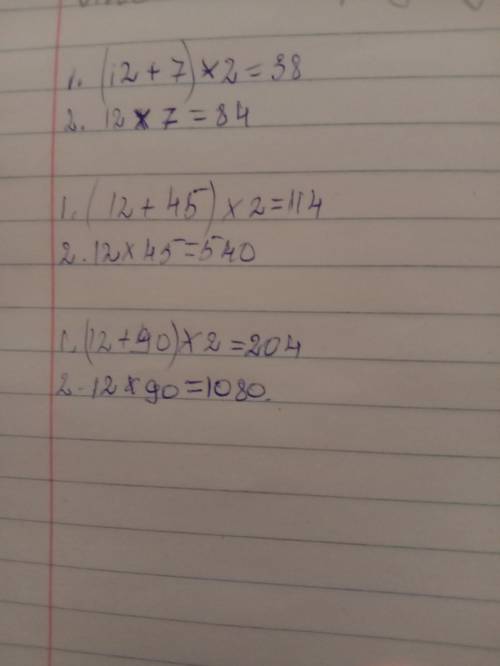 1. (12 + 7) × 2 = 38
2. 12 × 7 = 84
1. (12 + 45) × 2 = 114
2. 12 × 45 = 540
1. (12 + 90) × 2 = 204
2. 12 × 90 = 1080.